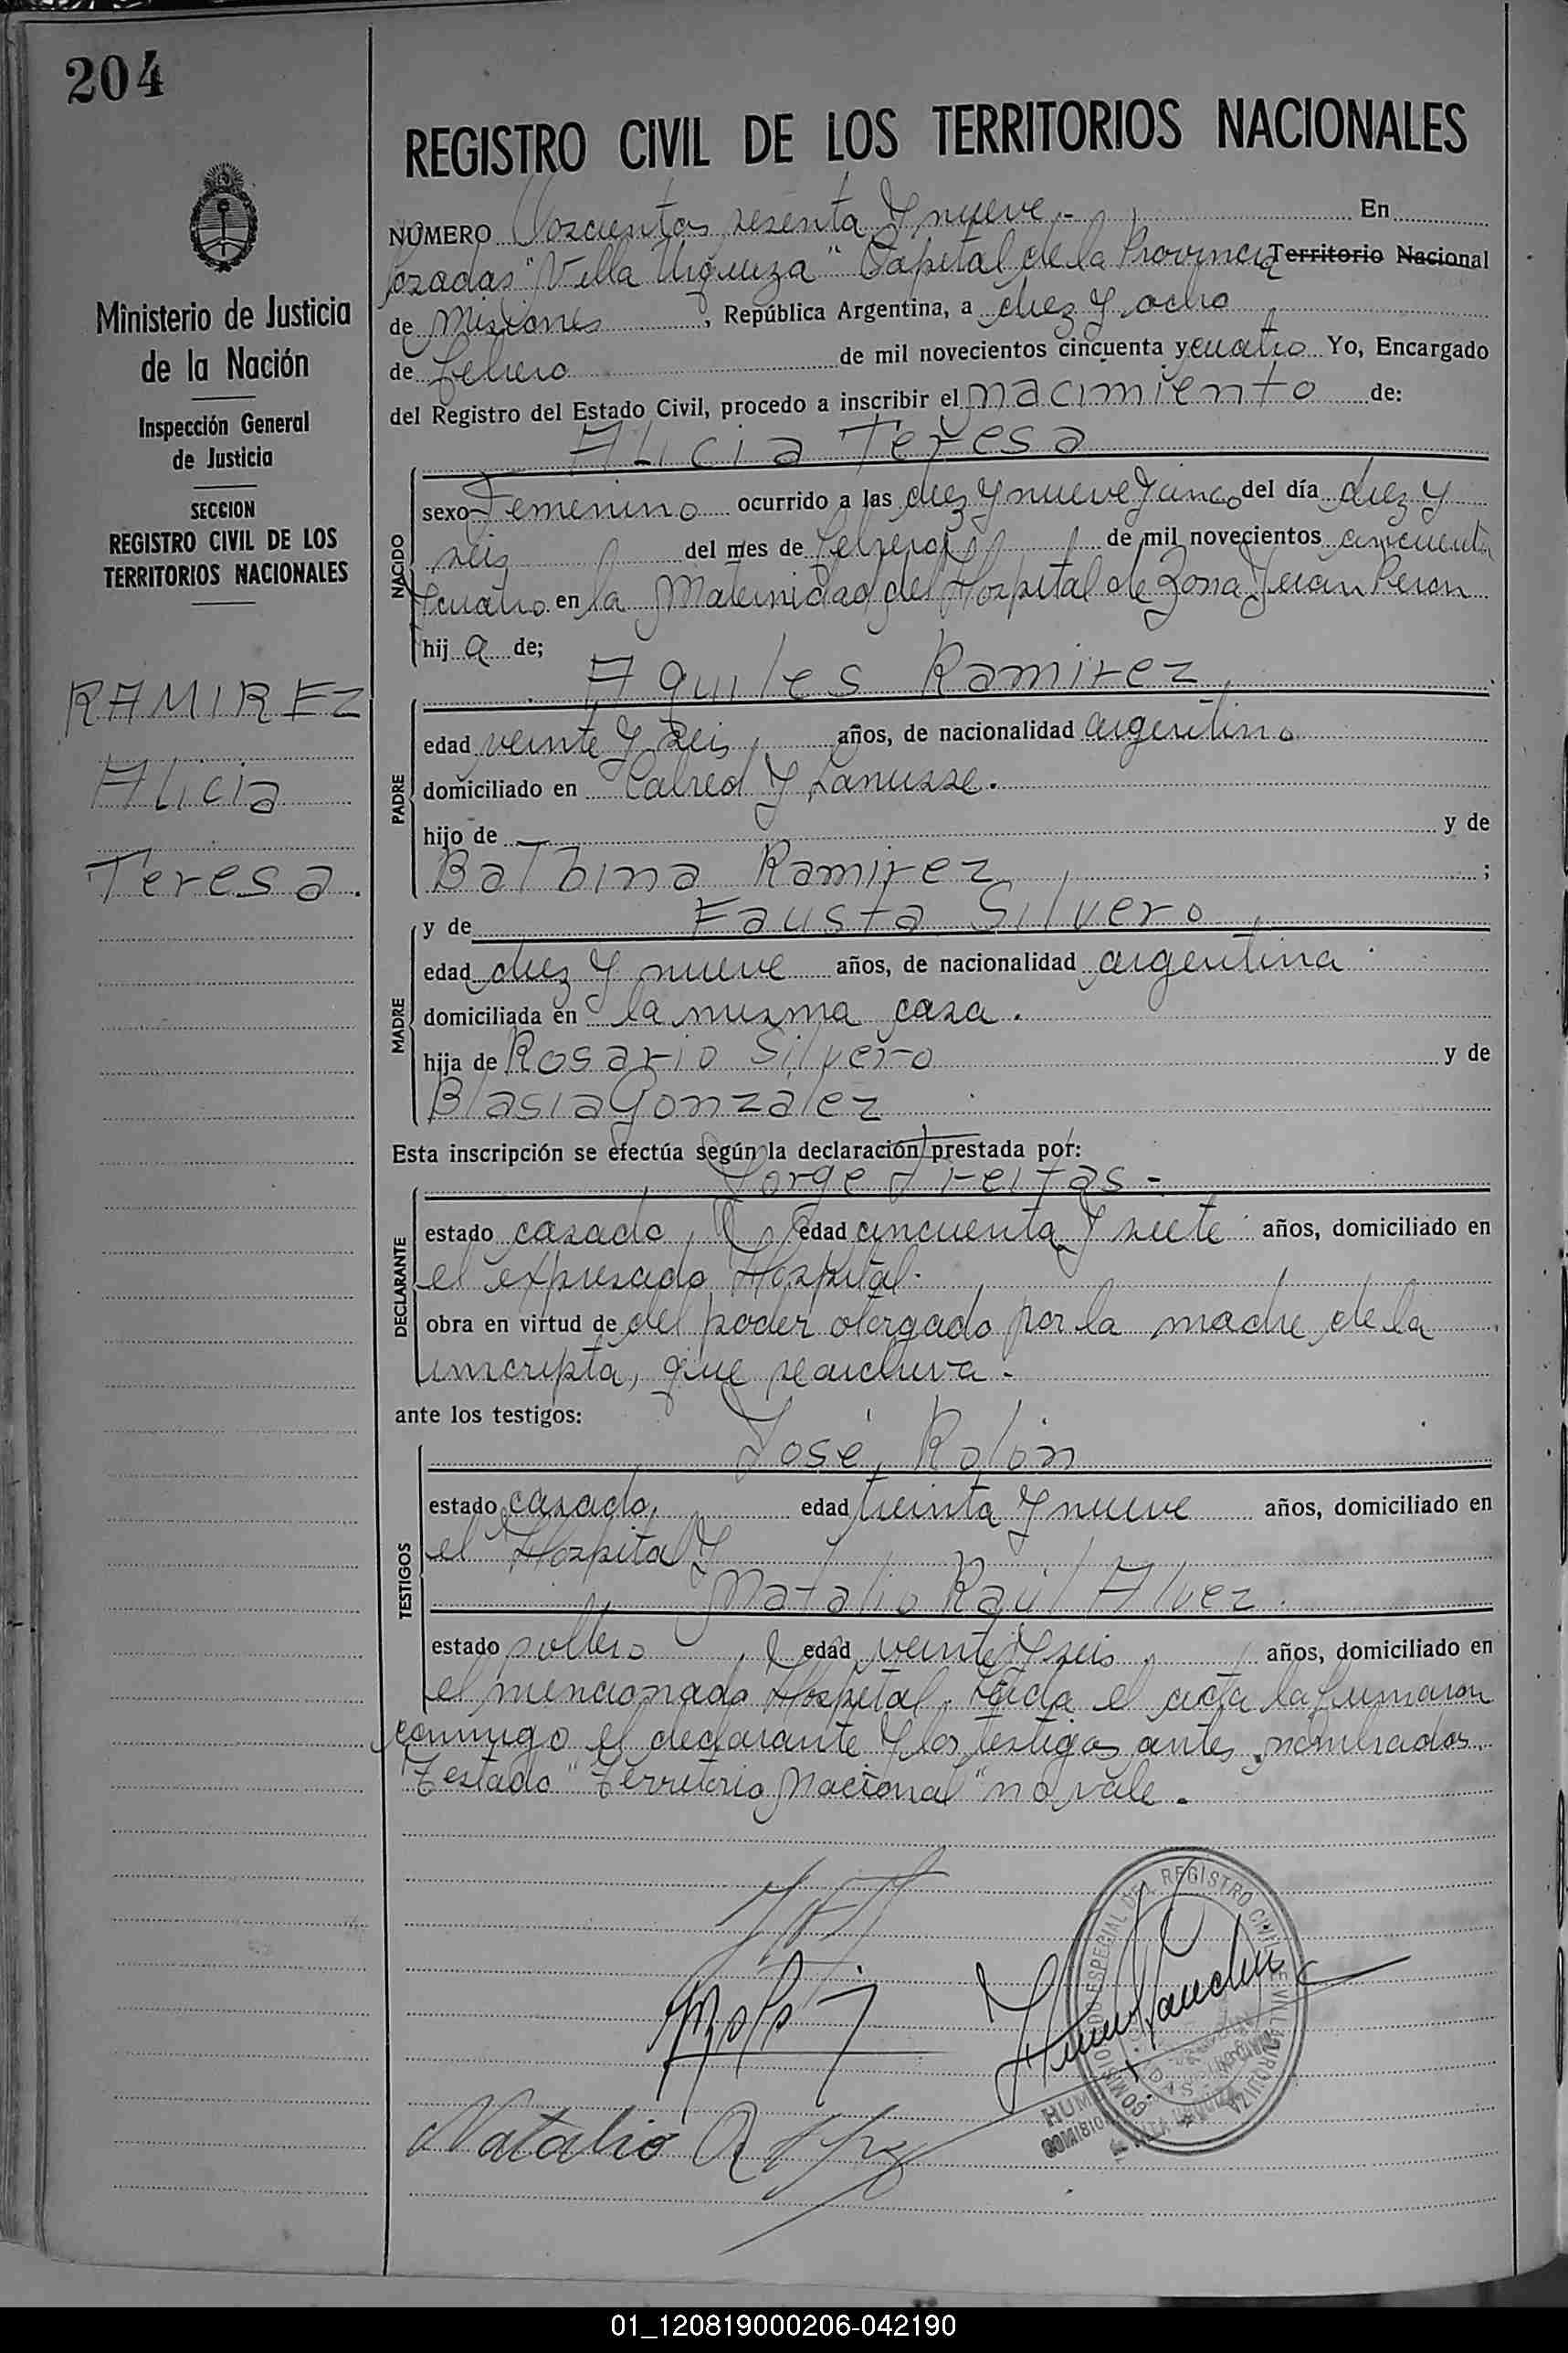 204
Ministerio de Justicia
de la Nación
Inspección General
de Justicia
SECCION
REGISTRO CIVIL DE LOS
TERRITORIOS NACIONALES
RAMIREZ
Alicia
Teresa.
REGISTRO CIVIL DE LOS TERRITORIOS NACIONALES
NÚMERO Doscientos sesenta y nueve.- En
Posadas "Villa Urquiza" Capital de la Provincia Territorio Nacional
de Misiones, República Argentina, a diez y ocho
de febrero de mil novecientos cincuenta y cuatro Yo, Encargado
del Registro del Estado Civil, procedo a inscribir el nacimiento de:
Alicia Teresa
NACIDO
sexo Femenino ocurrido a las diez y nueve y cinco del día diez y
seis del mes de febrero de mil novecientos cincuenta
y cuatro en la Maternidad del Hospital de Zona Juan Peron
hij a de;
Aquiles Ramirez,
PADRE
edad veinte y seis, años, de nacionalidad argentino
domiciliado en Cabred y Lanusse.
hijo de y de
Balbina Ramirez, ;
y de Fausta Silvero,
MADRE
edad diez y nueve años, de nacionalidad argentina
domiciliada en la misma casa.
hija de Rosario Silvero y de
Blasia Gonzalez
Esta inscripción se efectúa según la declaración prestada por:
Jorge Freitas-
DECLARANTE
estado casado, edad cincuenta y siete años, domiciliado en
el expresado Hospital.
obra en virtud de del poder otorgado por la madre de la
inscripta, que se archiva.-
ante los testigos:
José Rolón
TESTIGOS
estado casado, edad treinta y nueve años, domiciliado en
el Hospital y
Natalio Raúl Alvez.
estado soltero, edad veinte y seis, años, domiciliado en
el mencionado Hospital. Leída el acta la firmaron
conmigo el declarante y los testigos antes nombrados.
Testado "Territorio Nacional" no vale.-
Natalio R
01_120819000206-042190